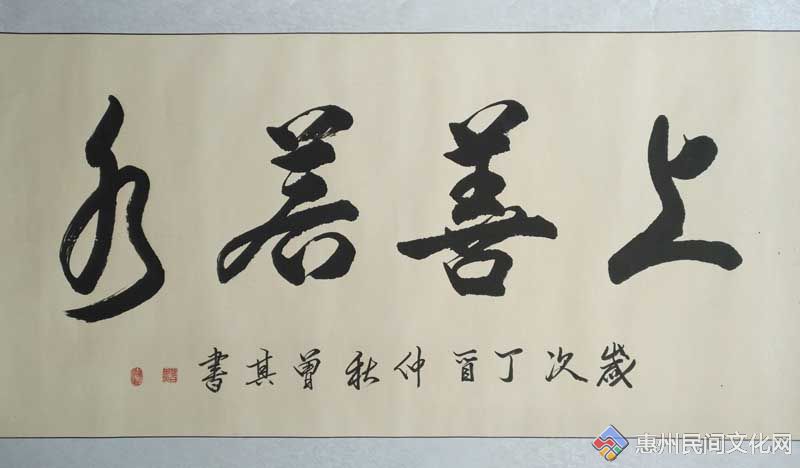 上善若水
歲次丁酉仲秋曾其書
惠州民间文化网